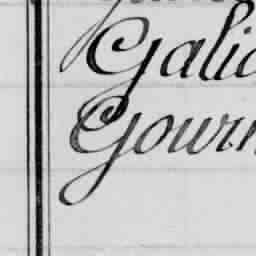 Galic
Gourn